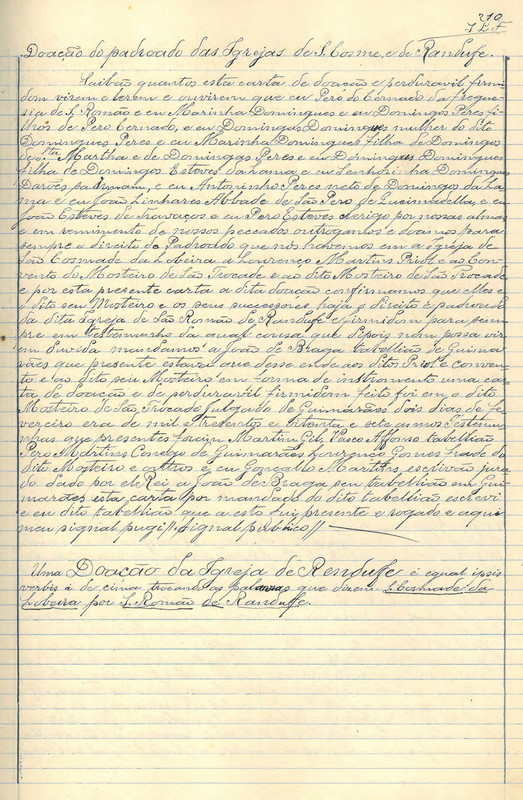 210
Doação do padroado das Igrejas de S. Cosme, e de Randufe.
Saibão quantos esta carta de doação e perduravil firmi
dom virem e lerem e ouvirem que eu Pero do Cernado da fregue
sia de S. Romão e eu Marinha Domingues e eu Domingos Peres fi
lhos de Pero Cernado, e eu Domingas Domingues mulher do dito
Domingues Peres e eu Marinha Domingues filha de Domingos
de Martha e de Domingas Peres e eu Domingas Domingues
filha de Domingos Esteves da Lama e eu Senhorinha Domingues
e eu Antoninho Peres neto de Domingo da La
ma e eu João Linhares Abbade de São Pero de e eu
João Esteves de Travaços e eu Pero Esteves clerigo por nossas almas
e em remimento de nossos peccados outrogamos e doamos para
sempre o direito de Padroado que nós havemos em a egreja de
São Cosmade da Lobeira a Lourenço Martins Priol e ao Con
vento do Mosteiro de São Trocade e ao dito Mosteiro de São Trocade
e por esta presente carta a dita doação confirmamos que elles e
o dito seu Mosteiro e os seus successores hajão o direito e padroado
da dita Igreja de São Romão de Randufe e firmidom para sem
pre em testemunho da qual cousa que depois nom possa vir
em duvida mandamos a João de Braga tabellião de Guima
rães que presente estava que desse ende aos ditos Priol e conven
to e ao dito seu Mosteiro em forma de instromento uma car
ta de doação e de perduravil firmidom feito foi em o dito
Mosteiro de São Trocade julgado de Guimarães dois dias de Fe
vereiro era de mil e trezentos e oitenta e sete annos testemu
nhas que presentes foram Martim Gil, Vasco Affonso tabellião
Pero Martins Conego de Guimarães Lourenço Gomes frade do
dito Mosteiro e outros e eu Gonçalo Martins, escrivão jura
do dado por el Rei a João de Braga seu tabellião em Gui
marães esta carta por mandado do dito tabellião escrevi
e eu dito tabellião que a esto fui presente e rogado e aqui
meu signal pugi // Signal publico //
Uma Doação da Igreja de Renduffe é egual ipsis
verbis á de cima trocando as palavras que dizem S. Cosmade da
Lobeira por S. Romão de Randuffe.